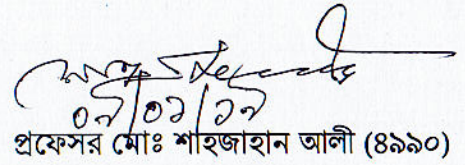 ০৯/০১/১৯
প্রফেসর মোঃ শাহজাহান আলী (৪৯৯০)